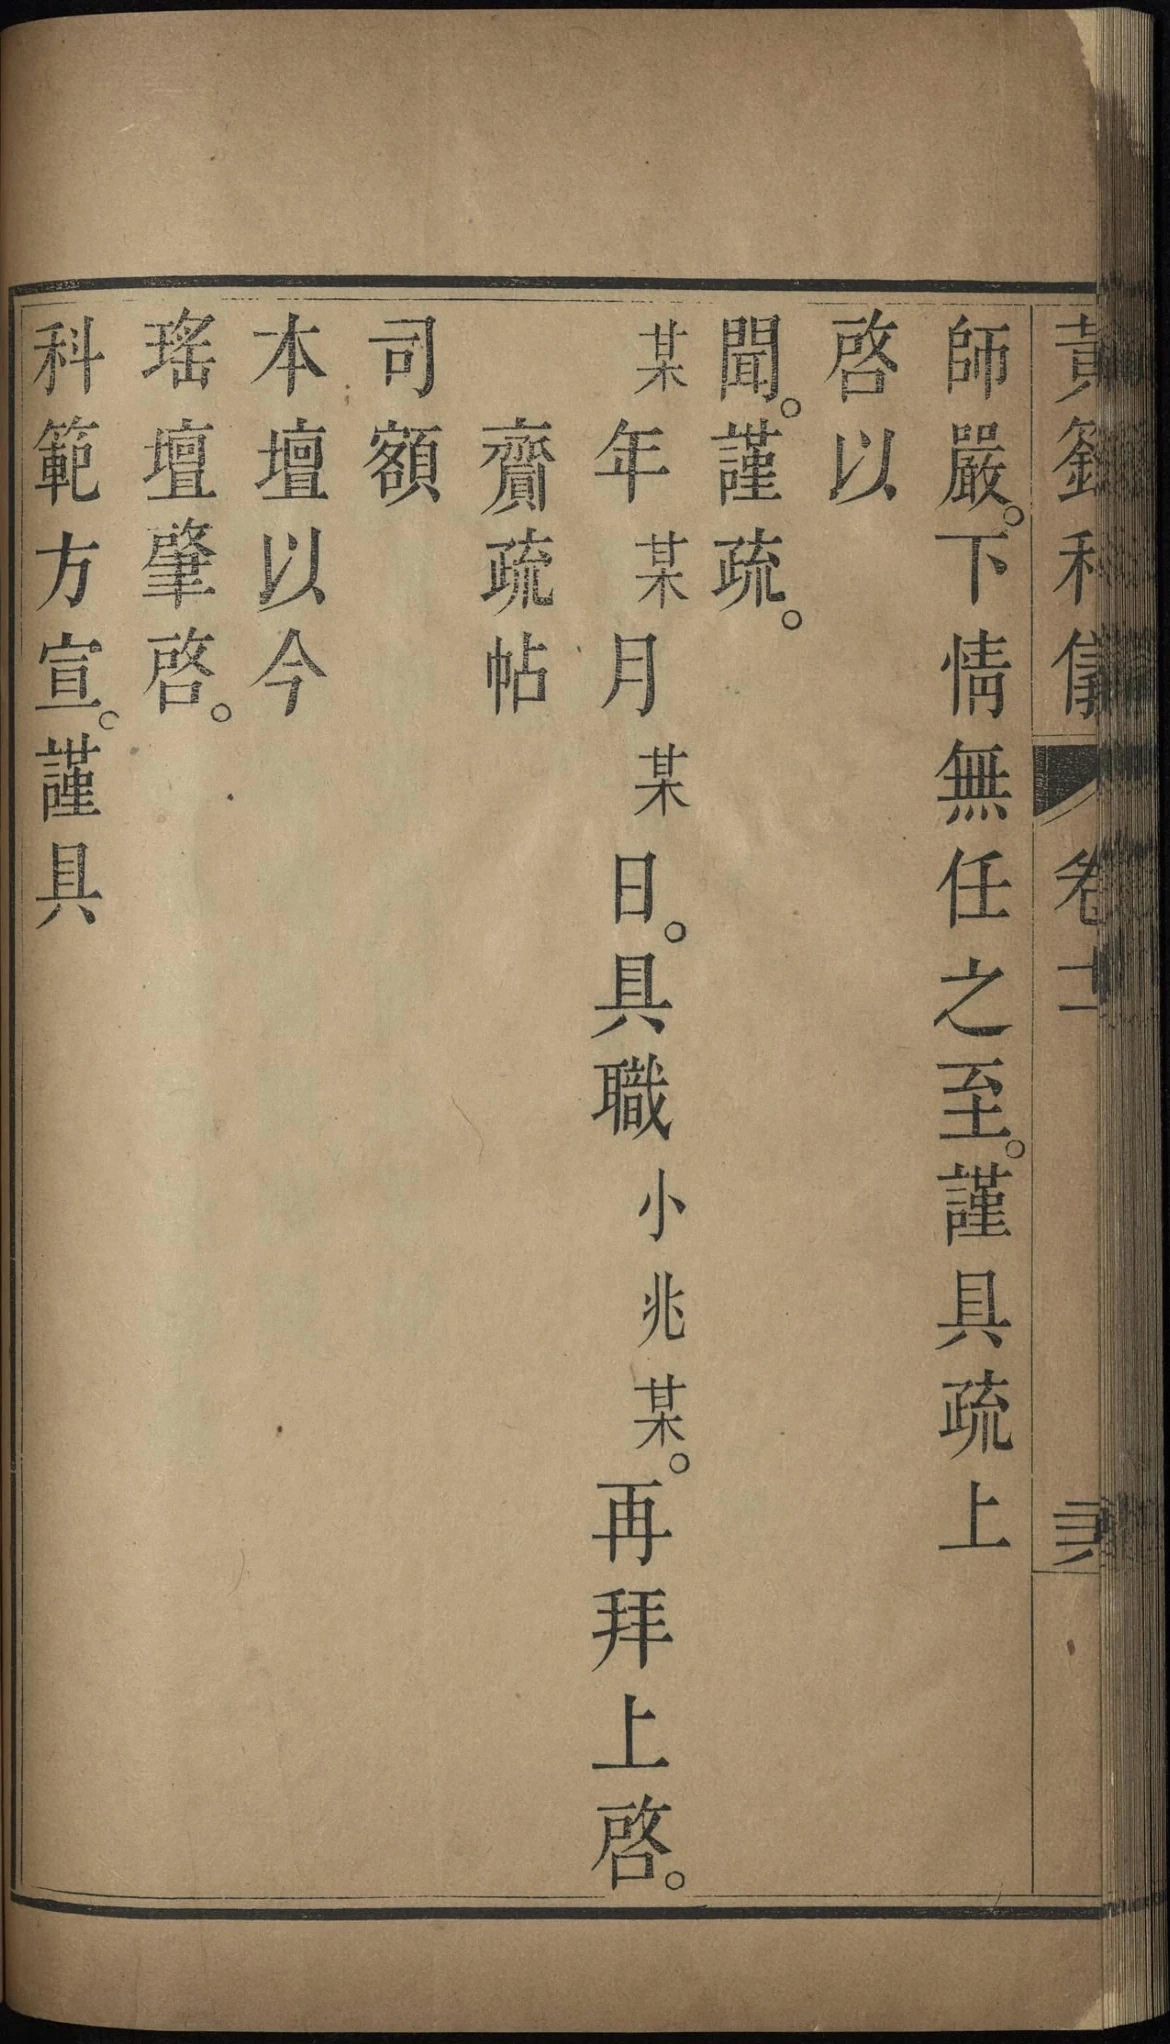 黃籙科儀 卷十
師嚴。下情無任之至。謹具疏上
啓以
聞。謹疏。
某年某月某日。具職小兆某。再拜上啓。
齎疏帖
司額
本壇以今
瑤壇肇啓。
科範方宣。謹具